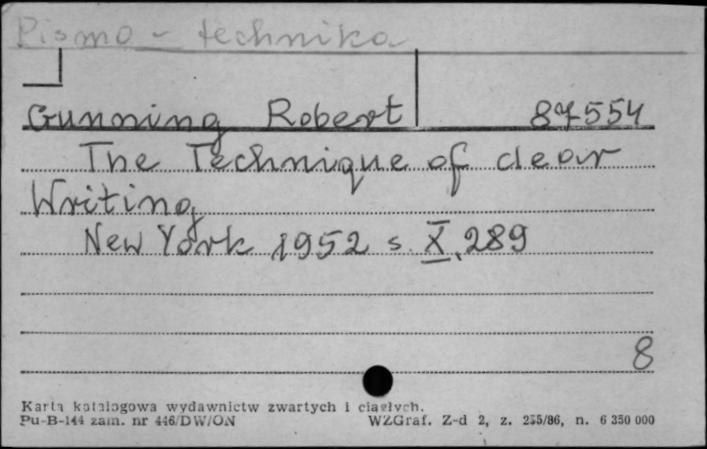 Pismo - technika
Gunning Robert 87554
The Technique of clear
Writing
New York 1952 s. X, 289
8
Karta katalogowa wydawnictw zwartych i ciągłych.
Pu-B-144 zam. nr 446/DW/ON WZGraf. Z-d 2, z. 255/86, n. 6 350 000